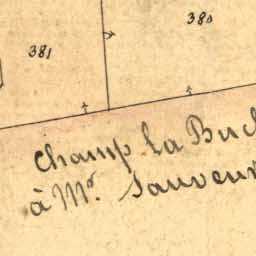 381
380
Champ La Buch
à Mr. Sauveur